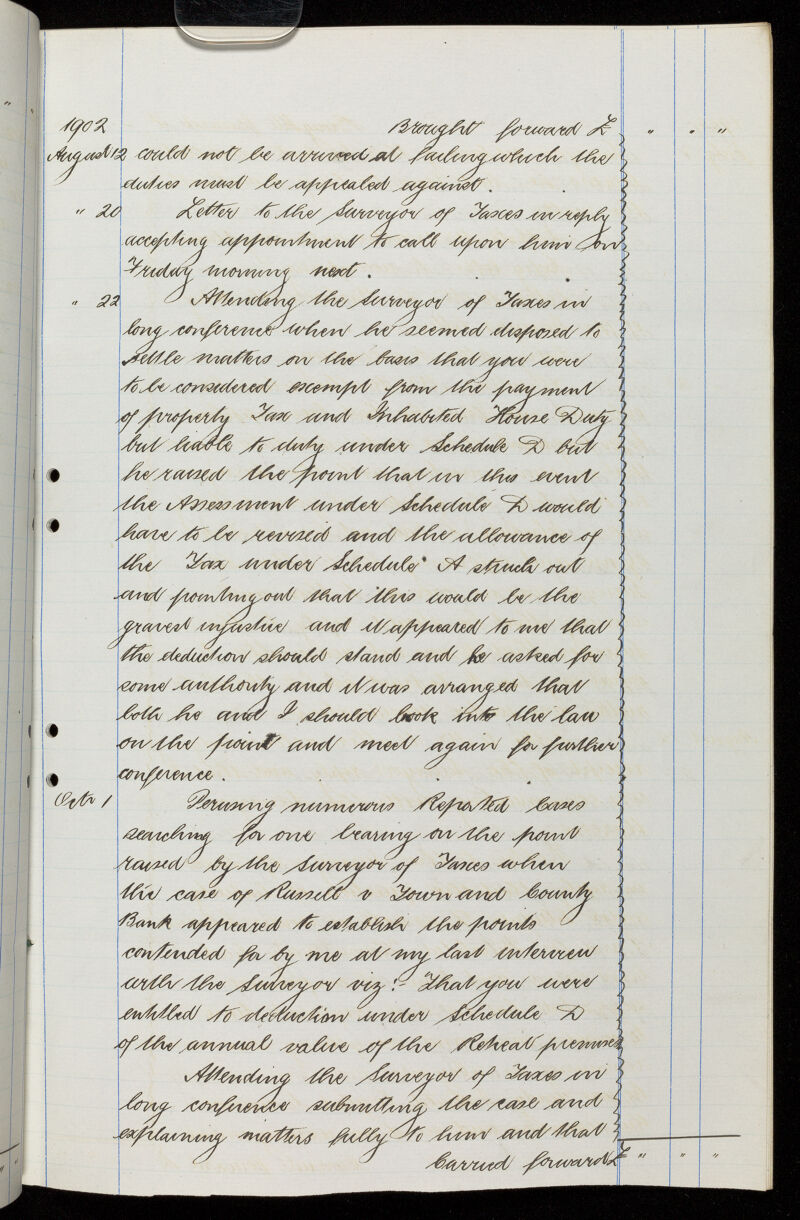 1902 Brought forward £ " " "
August 12 could not be arrived at failing which the
duties must be appealed against.
" 20 Letter to the Surveyor of Taxes in reply
accepting appointment to call upon him on
Friday morning next.
" 22 Attending the Surveyor of Taxes in
long conference when he seemed disposed to
settle matters on the basis that you were
to be considered exempt from the payment
of property Tax and Inhabited House Duty
but liable to duty under Schedule D but
he raised the point that in this event
the Assessment under Schedule D would
have to be revised and the allowance of
the Tax under Schedule A struck out
and pointing out that this would be the
gravest injustice and it appeared to me that
the deduction should stand and he asked for
some authority and it was arranged that
both he and I should look into the law
on the point and meet again for further
conference.
Octr 1 Perusing numerous Reported Cases
searching for one bearing on the point
raised by the Surveyor of Taxes when
the case of Russell v Town and County
Bank appeared to establish the points
contended for by me at my last interview
with the Surveyor viz:- That you were
entitled to deduction under Schedule D
of the annual value of the Retreat premises
Attending the Surveyor of Taxes in
long conference submitting the case and
explaining matters fully to him and that
Carried forward £ " " "